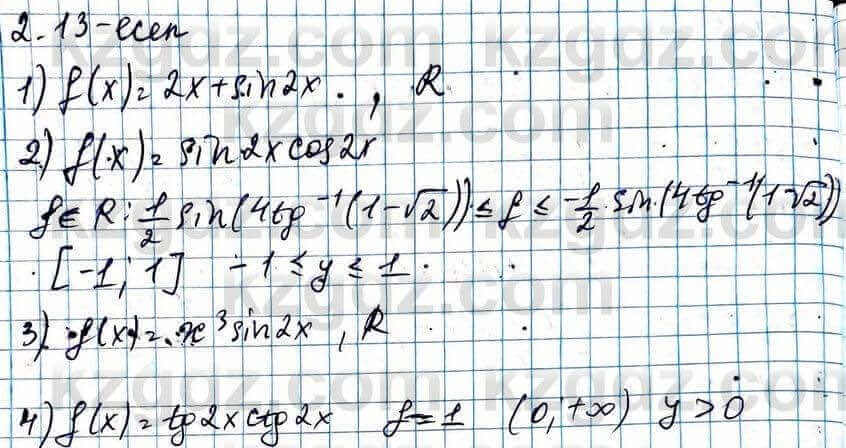 2.13-есеп
1) f(x)=2x+sin2x. , R.
2) f(x)=sin2xcos2x
f∈R: 1/2 sin(4tg⁻¹(1-√2))≤f≤-1/2·sin(4tg⁻¹(1-√2))
[-1; 1] -1≤y≤1.
3) f(x)=x³sin2x, R
4) f(x)=tg2xctg2x f=1 (0; +∞) y>0
kzgdz.com